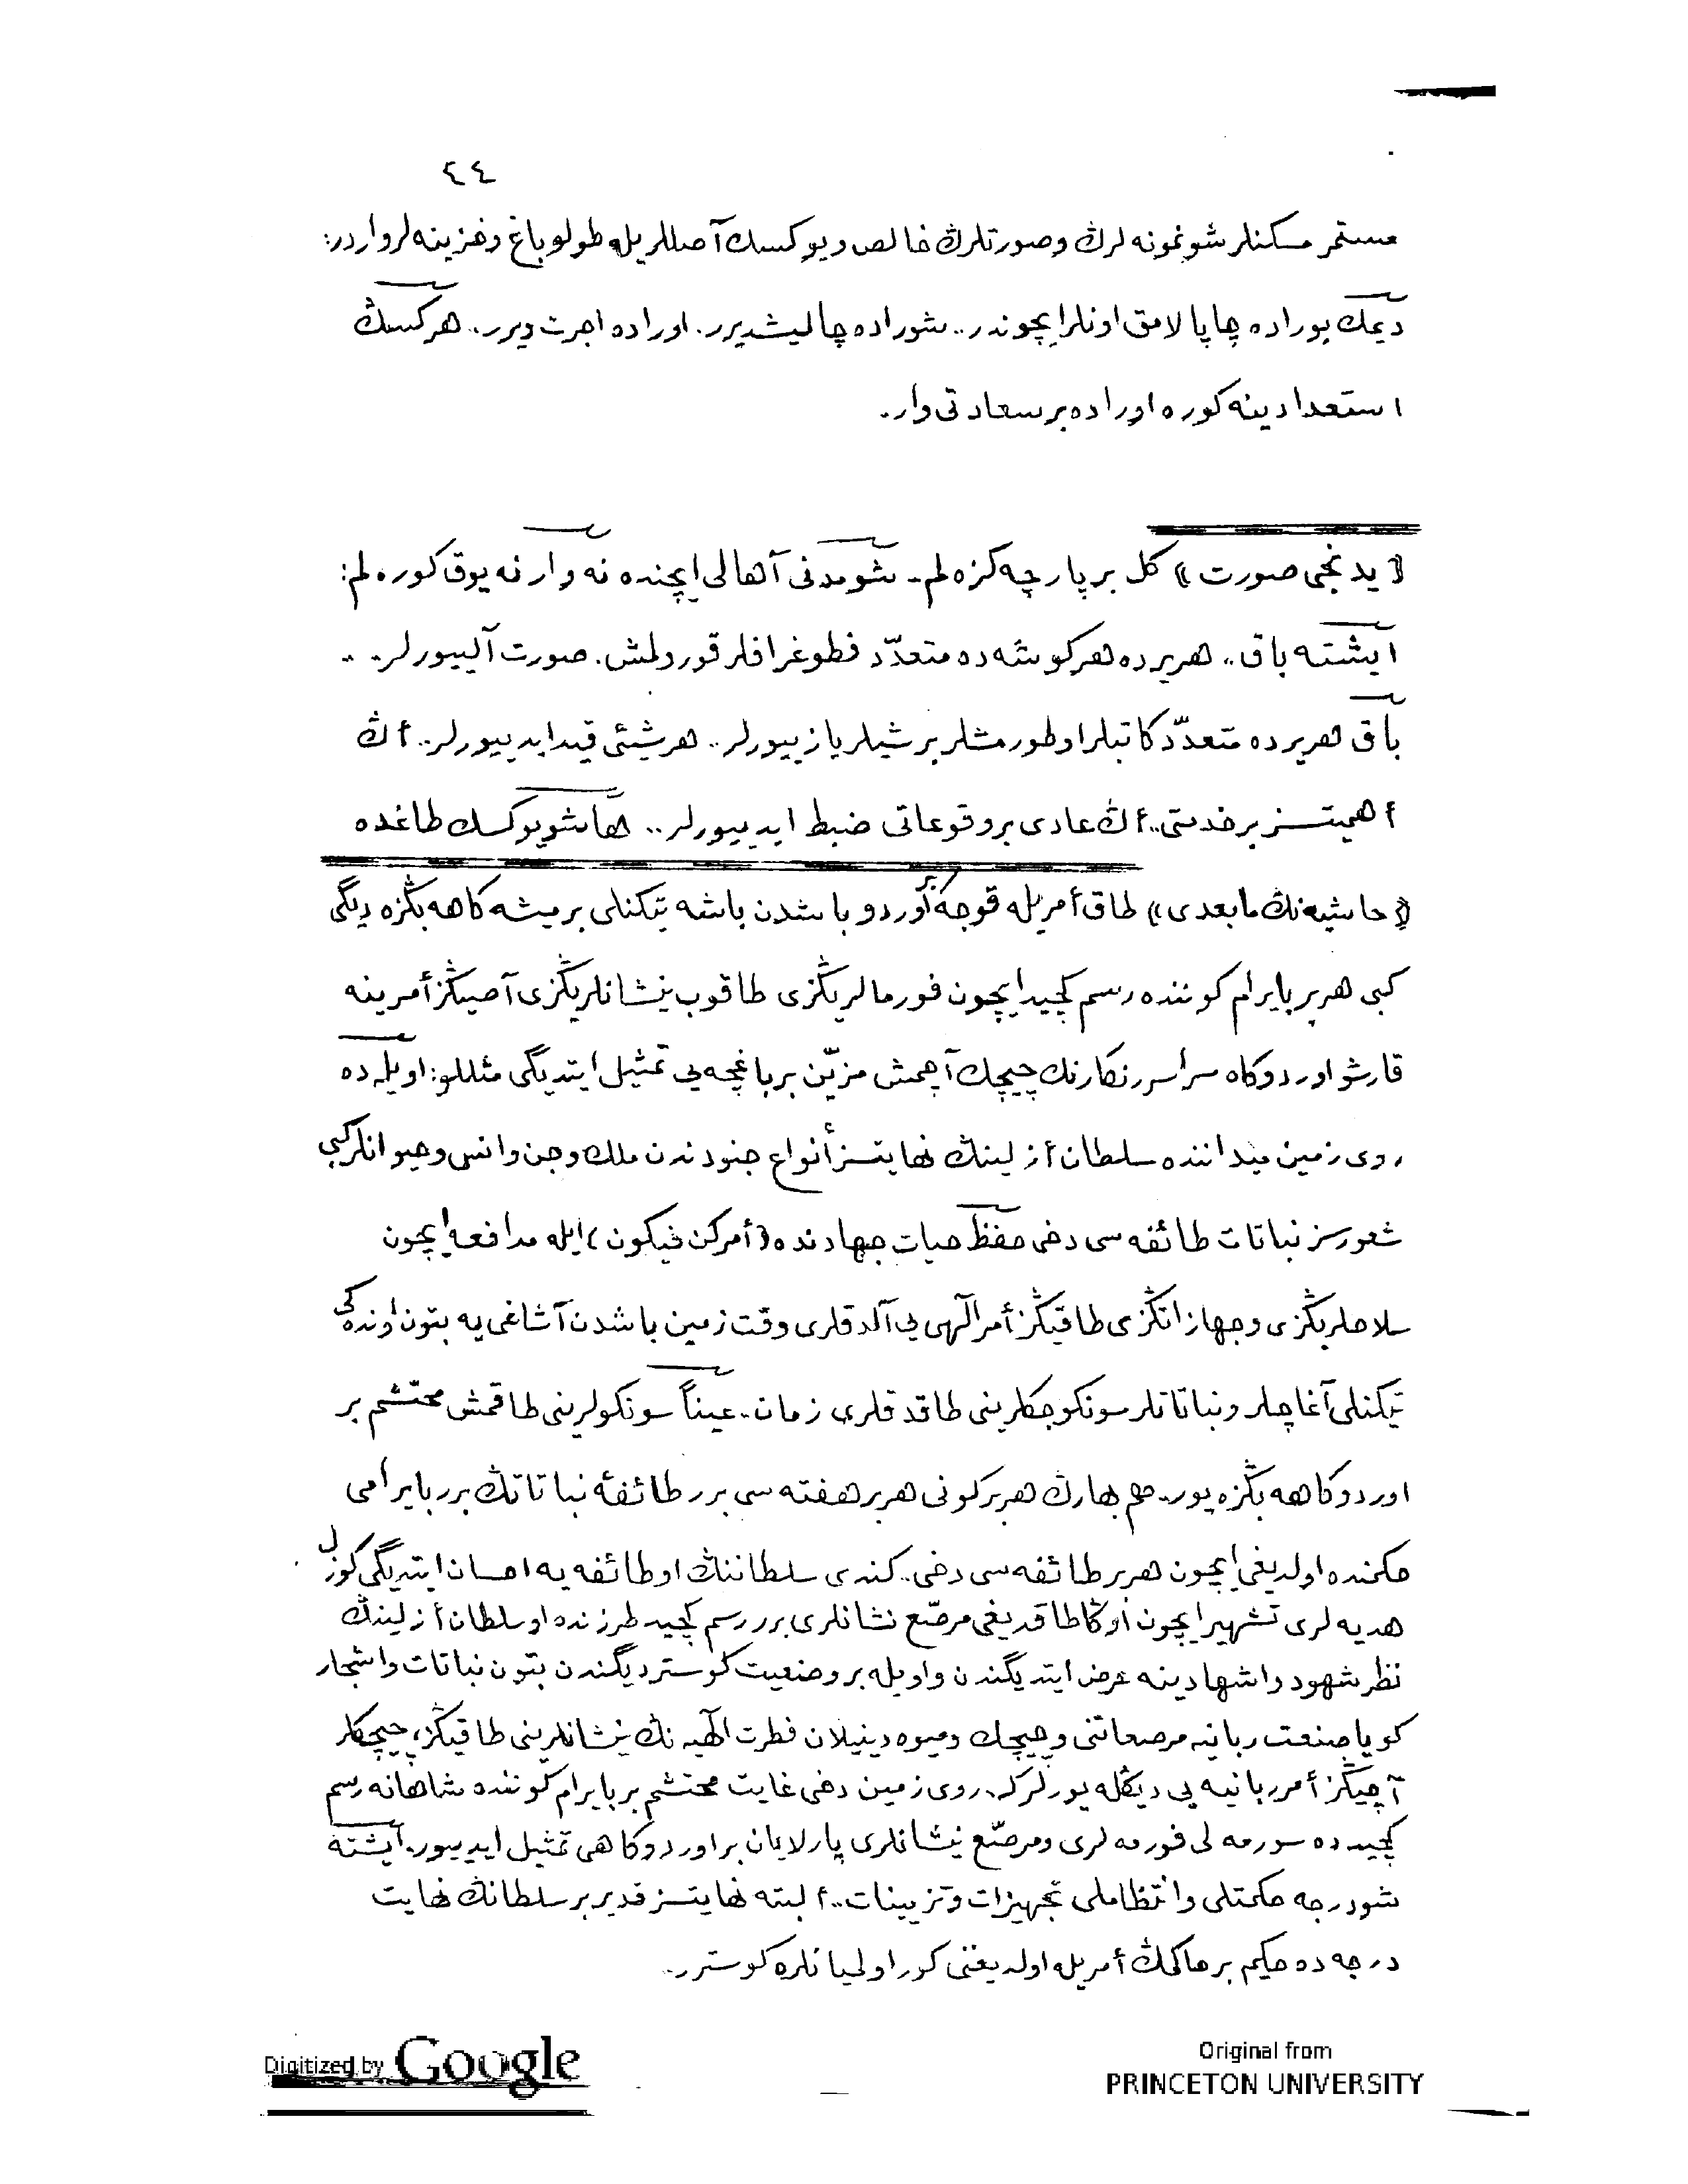 ٤٤
مستمر مسكنلر شو نمونه لرڭ وصورتلرڭ خالص ويوكسك آصللريله طولو باغ وخزينه لر واردر:
ديمك بوراده چاپالامق اونلر ايچوندر.. شوراده چاليشديرر. اوراده اجرت ويرر.. هركسڭ
استعدادينه كوره اوراده بر سعادتى وار.
﴿يدنجى صورت﴾ كل بر پارچه كزه لم- شو مدنى آهالى ايچنده نه وار نه يوق كوره لم:
ايشته باق.. هر يرده هر كوشه ده متعدّد فطوغرافلر قورولمش. صورت آلييورلر..
باق هر يرده متعدّد كاتبلر اوطورمشلر بر شيلر يازييورلر.. هر شيئى قيد ايدييورلر.. أڭ
أهميتسز بر خدمتى.. أڭ عادى بر وقوعاتى ضبط ايدييورلر.. ها شو يوكسك طاغده
﴿حاشيه نڭ مابعدى﴾ طاق أمريله قوجه بر اوردو باشدن باشه تيكنلى بر ميشه كاهه بڭزه ديگى
كبى هر بر بايرام كوننده رسم كچيد ايچون فورمالريڭزى طاقوب نيشانلريڭزى آصيڭز أمرينه
قارشو اوردوكاه سراسر رنكارنك چيچك آچمش مزيّن بر باغچه يى تمثيل ايتديگى مثللو: اويله ده
روى زمين ميداننده سلطان أزلينڭ نهايتسز أنواع جنودندن ملك وجن وانس وحيوانلر كبى
شعورسز نباتات طائفه سى دخى حفظ حيات جهادنده ﴿أمر كن فيكون﴾ ايله مدافعه ايچون
سلاحلريڭزى وجهازاتڭزى طاقيڭز أمر الٓهى يى آلدقلرى وقت زمين باشدن آشاغى يه بتون اونده كى
تيكنلى آغاچلر ونباتاتلر سونكوجكلرينى طاقدقلرى زمان.. عيناً سونكولرينى طاقمش محتشم بر
اوردوكاهه بڭزه يور.. هم بهارڭ هر بر كونى هر بر هفته سى برر طائفۀ نباتاتڭ برر بايرامى
حكمنده اولديغى ايچون هر بر طائفه سى دخى.. كندى سلطاننڭ او طائفه يه احسان ايتديگى كوزل
هديه لرى تشهير ايچون اوڭا طاقديغى مرصّع نشانلرى برر رسم كچيد طرزنده او سلطان أزلينڭ
نظر شهود واشهادينه عرض ايتديگندن واويله بر وضعيت كوسترديگندن بتون نباتات واشجار
كويا صنعت ربانيه مرصعاتنى وچيچك وميوه دينيلان فطرت الٓهيه نڭ نيشانلرينى طاقيڭز، چيچكلر
آچيڭز أمر ربانيه يى ديڭله يورلر كه. روى زمين دخى غايت محتشم بر بايرام كوننده شاهانه رسم
كچيدده سورمه لى فورمه لرى ومرصّع نيشانلرى پارلايان بر اوردوكاهى تمثيل ايدييور. ايشته
شو درجه حكمتلى وانتظاملى تجهيزات وتزيينات.. ألبته نهايتسز قدير بر سلطانڭ نهايت
درجه ده حكيم بر حاكمڭ أمريله اولديغنى كور اوليانلره كوسترر.
Digitized by Google
Original from
PRINCETON UNIVERSITY